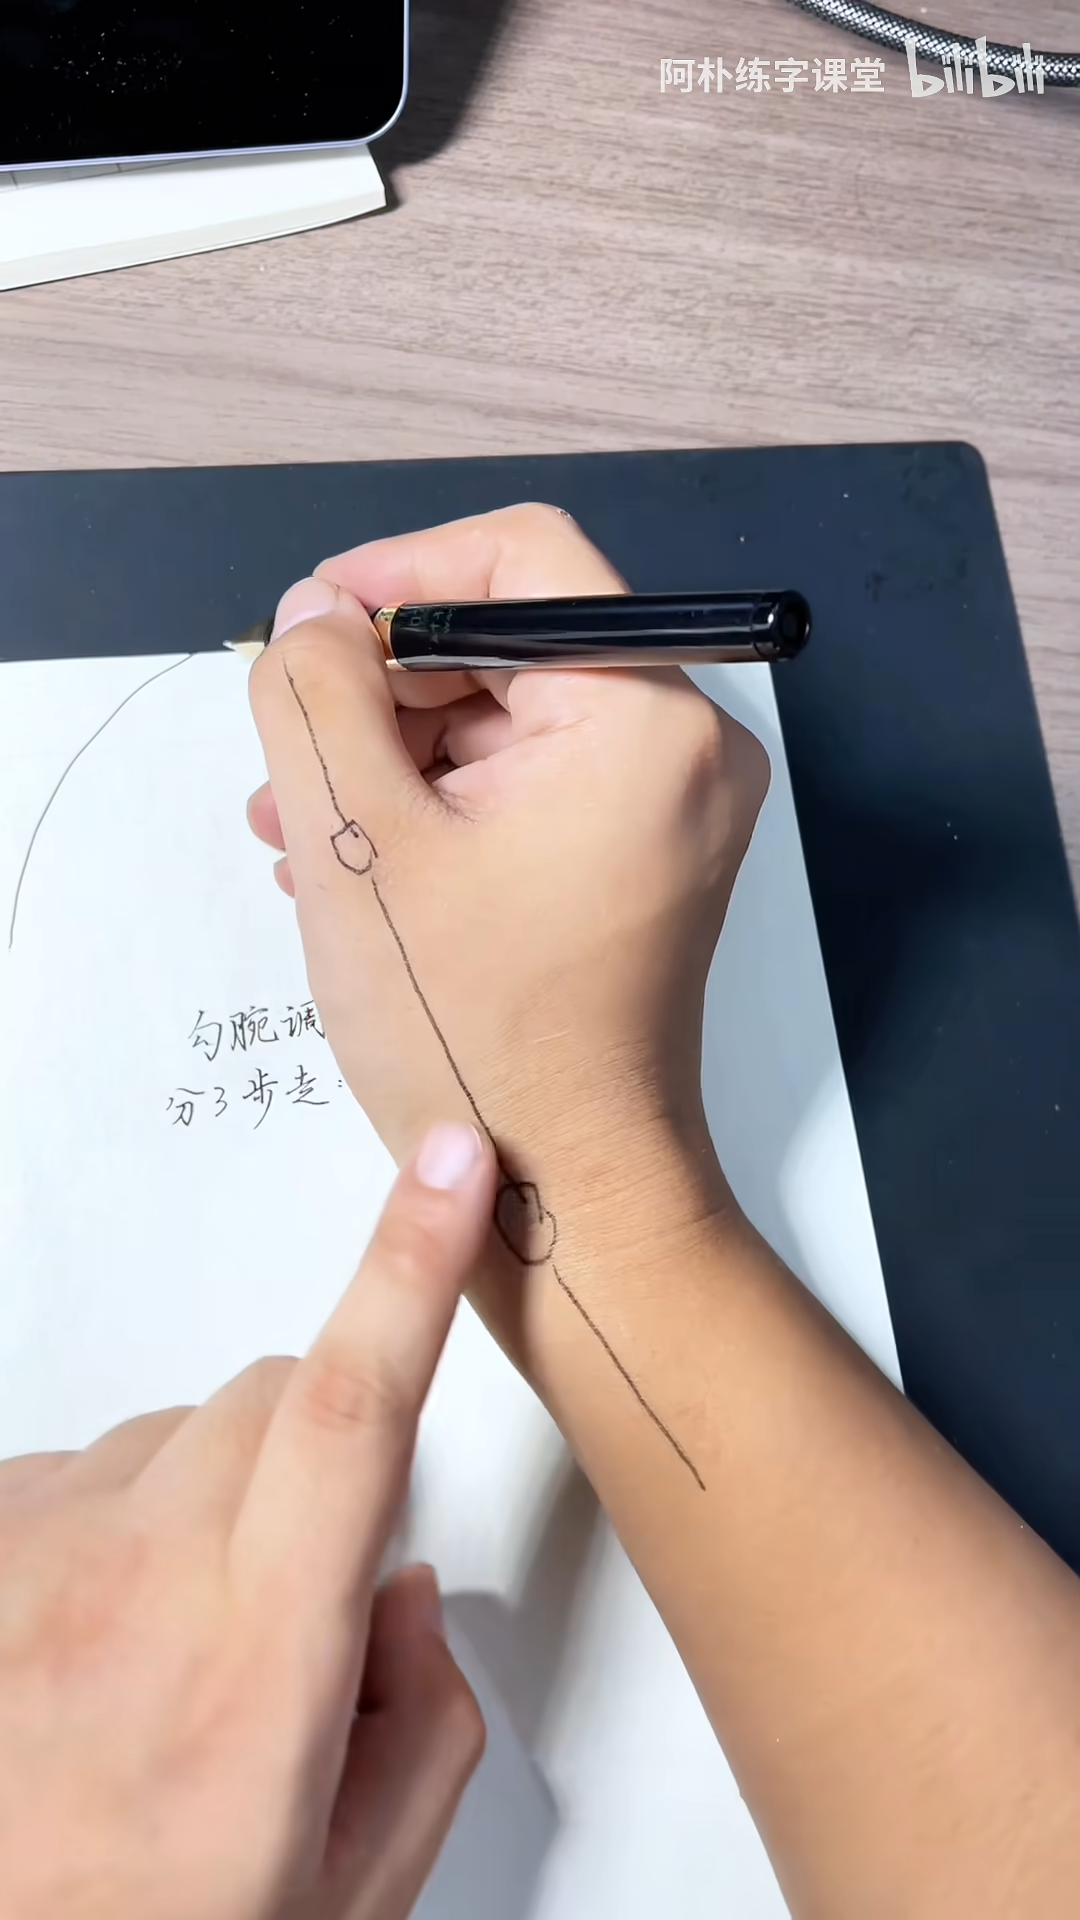 阿朴练字课堂 bilibili
勾腕调
分3步走：